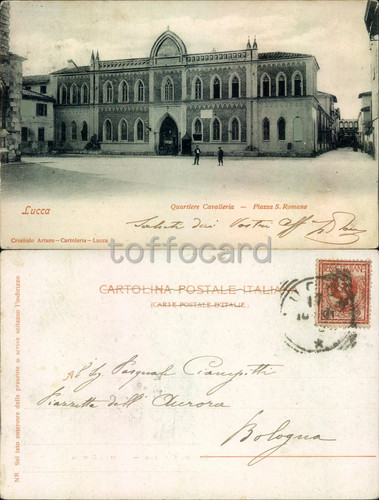 Lucca
Quartiere Cavalleria — Piazza S. Romano
Saluti dai Vostri aff
Croniolo Arturo – Cartoleria – Lucca
toffocard
CARTOLINA POSTALE ITALIANA
(CARTE POSTALE D'ITALIE)
NB. Sul lato anteriore della presente si scrive soltanto l'indirizzo
Pasquale Ciampitti
Piazzetta dell'Aurora
Bologna